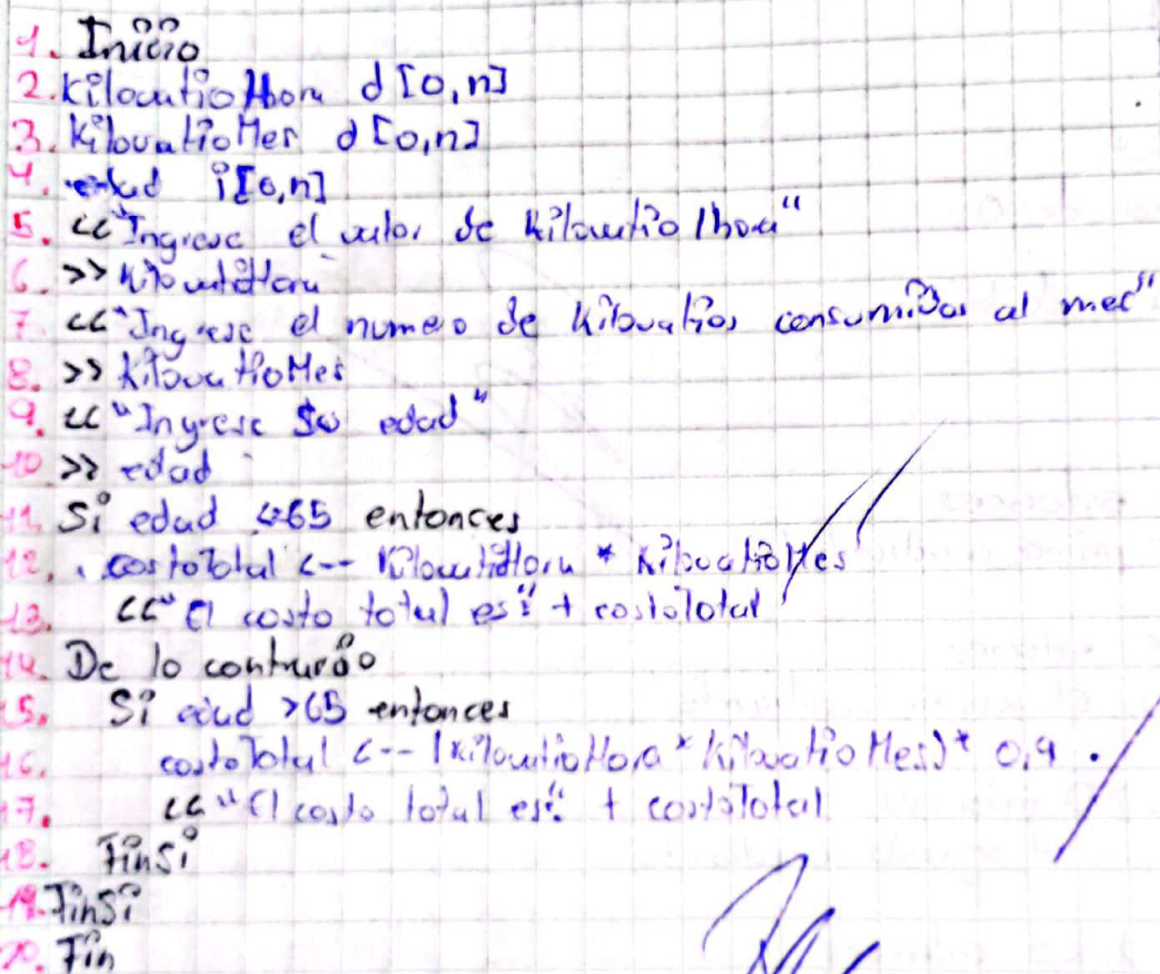 1. Inicio
2. KilovatioHora d [0,n]
3. KilovatioMes d [0,n]
4. edad i[0,n]
5. << "Ingrese el valor de Kilovatio/hora"
6. >> KilovatioHora
7. << "Ingrese el numero de Kilovatios consumidos al mes"
8. >> KilovatioMes
9. << "Ingrese su edad"
10 >> edad
11. Si edad <65 entonces
12. costoTotal <-- KilovatioHora * KilovatioMes
13. << "El costo total es:" + costoTotal
14. De lo contrario
15. Si edad >65 entonces
16. costoTotal <-- (KilovatioHora * KilovatioMes) * 0,9.
17. << "El costo total es:" + costoTotal
18. FinSi
19. FinSi
20. Fin